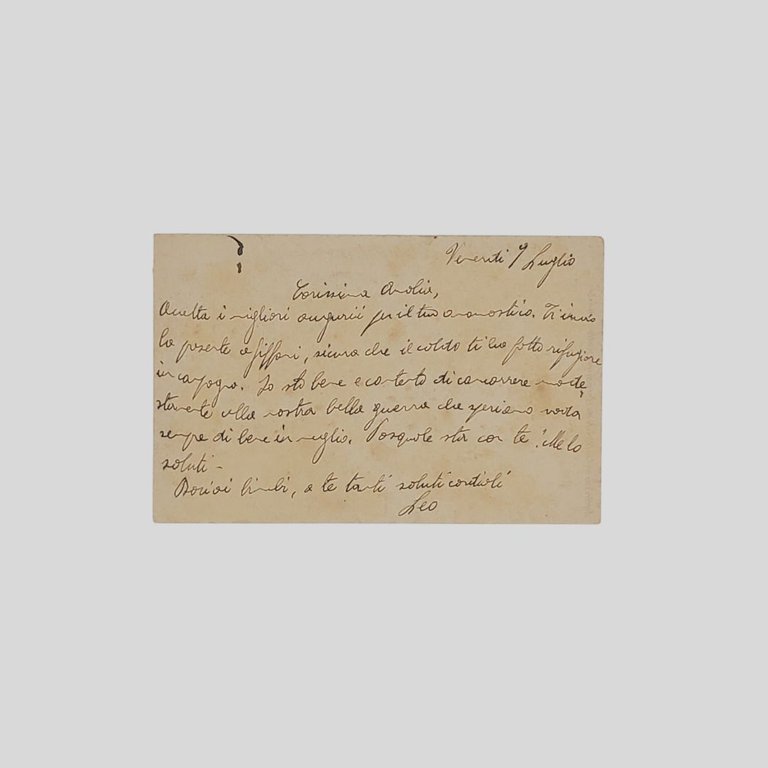 Venerdi 9 Luglio
Carissima Amalia,
Accetta i migliori augurii pel tuo onomastico. Ti invio
la presente a Giffoni, sicuro che il caldo ti ha fatto rifugiare
in campagna. Io sto bene e contento di concorrere mode
stamente alla nostra bella guerra che speriamo vada
sempre di bene in meglio. Pasquale sta con te? Me lo
saluti -
Baci ai bimbi, a te tanti saluti cordiali
Leo